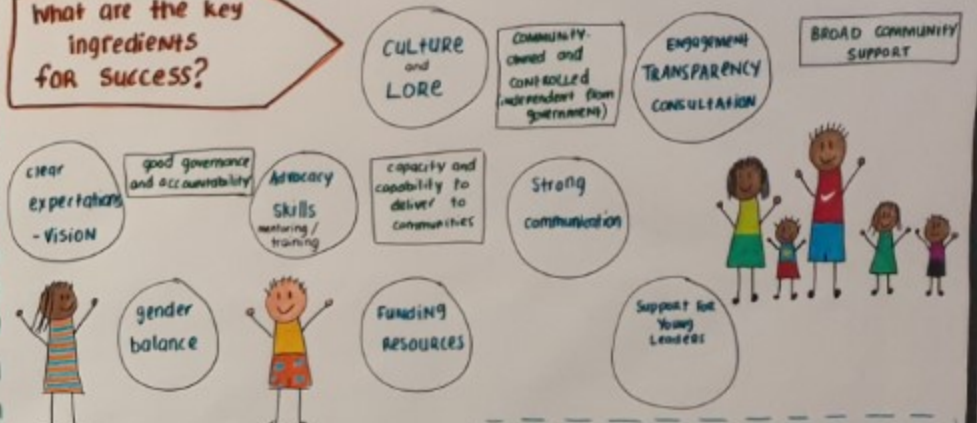 What are the key
ingredients
for success?
CULTURE
and
LORE
COMMUNITY-
owned and
CONTROLLED
independent from
government)
ENGAGEMENT
TRANSPARENCY
CONSULTATION
BROAD COMMUNITY
SUPPORT
clear
expectations
- VISION
good governance
and accountability
Advocacy
skills
mentoring/
training
capacity and
capability to
deliver to
communities
Strong
communication
gender
balance
FUNDING
RESOURCES
Support for
Young
Leaders